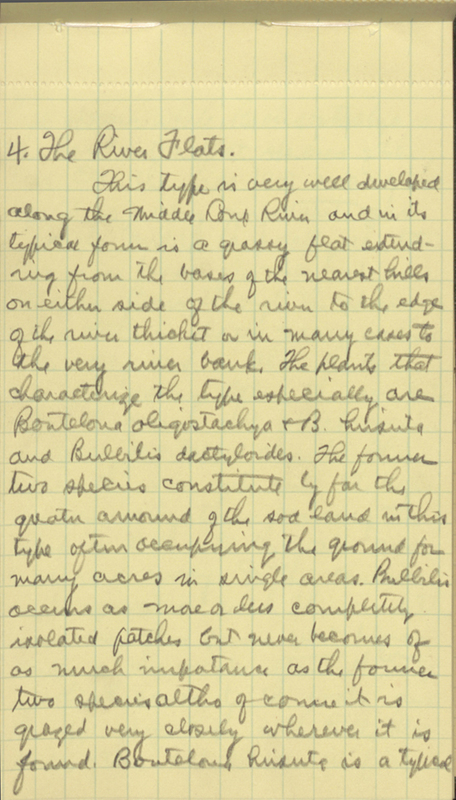 4. The River Flats.
This type is very well developed
along the Middle Loup River and in its
typical form is a grassy flat extend-
ing from the bases of the nearest hills
on either side of the river to the edge
of the river thicket or in many cases to
the very river bank. The plants that
characterize the type especially are
Bouteloua oligostachya + B. hirsuta
and Bulbilis dactyloides. The former
two species constitute by far the
greater amound of the sod land in this
type often occupying the ground for
many acres in single areas. Bulbilis
occurs as more or less completely
isolated patches but never becomes of
as much importance as the former
two species altho of course it is
grazed very closely wherever it is
found. Bouteloua hirsuta is a typical